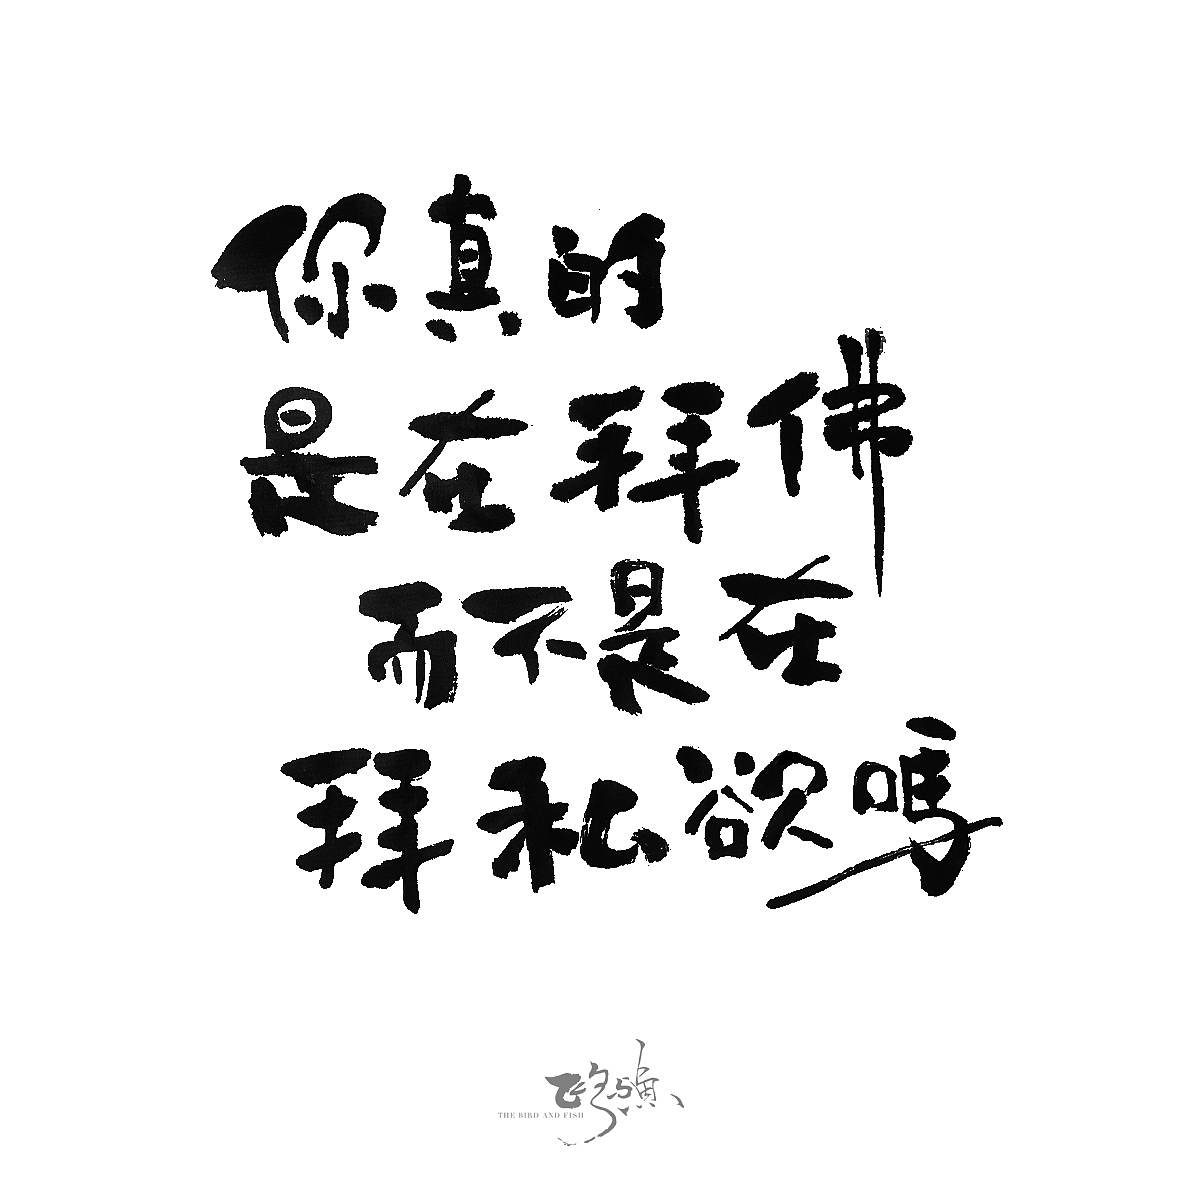 你真的
是在拜佛
而不是在
拜私欲嗎
飞鸟与鱼
THE BIRD AND FISH